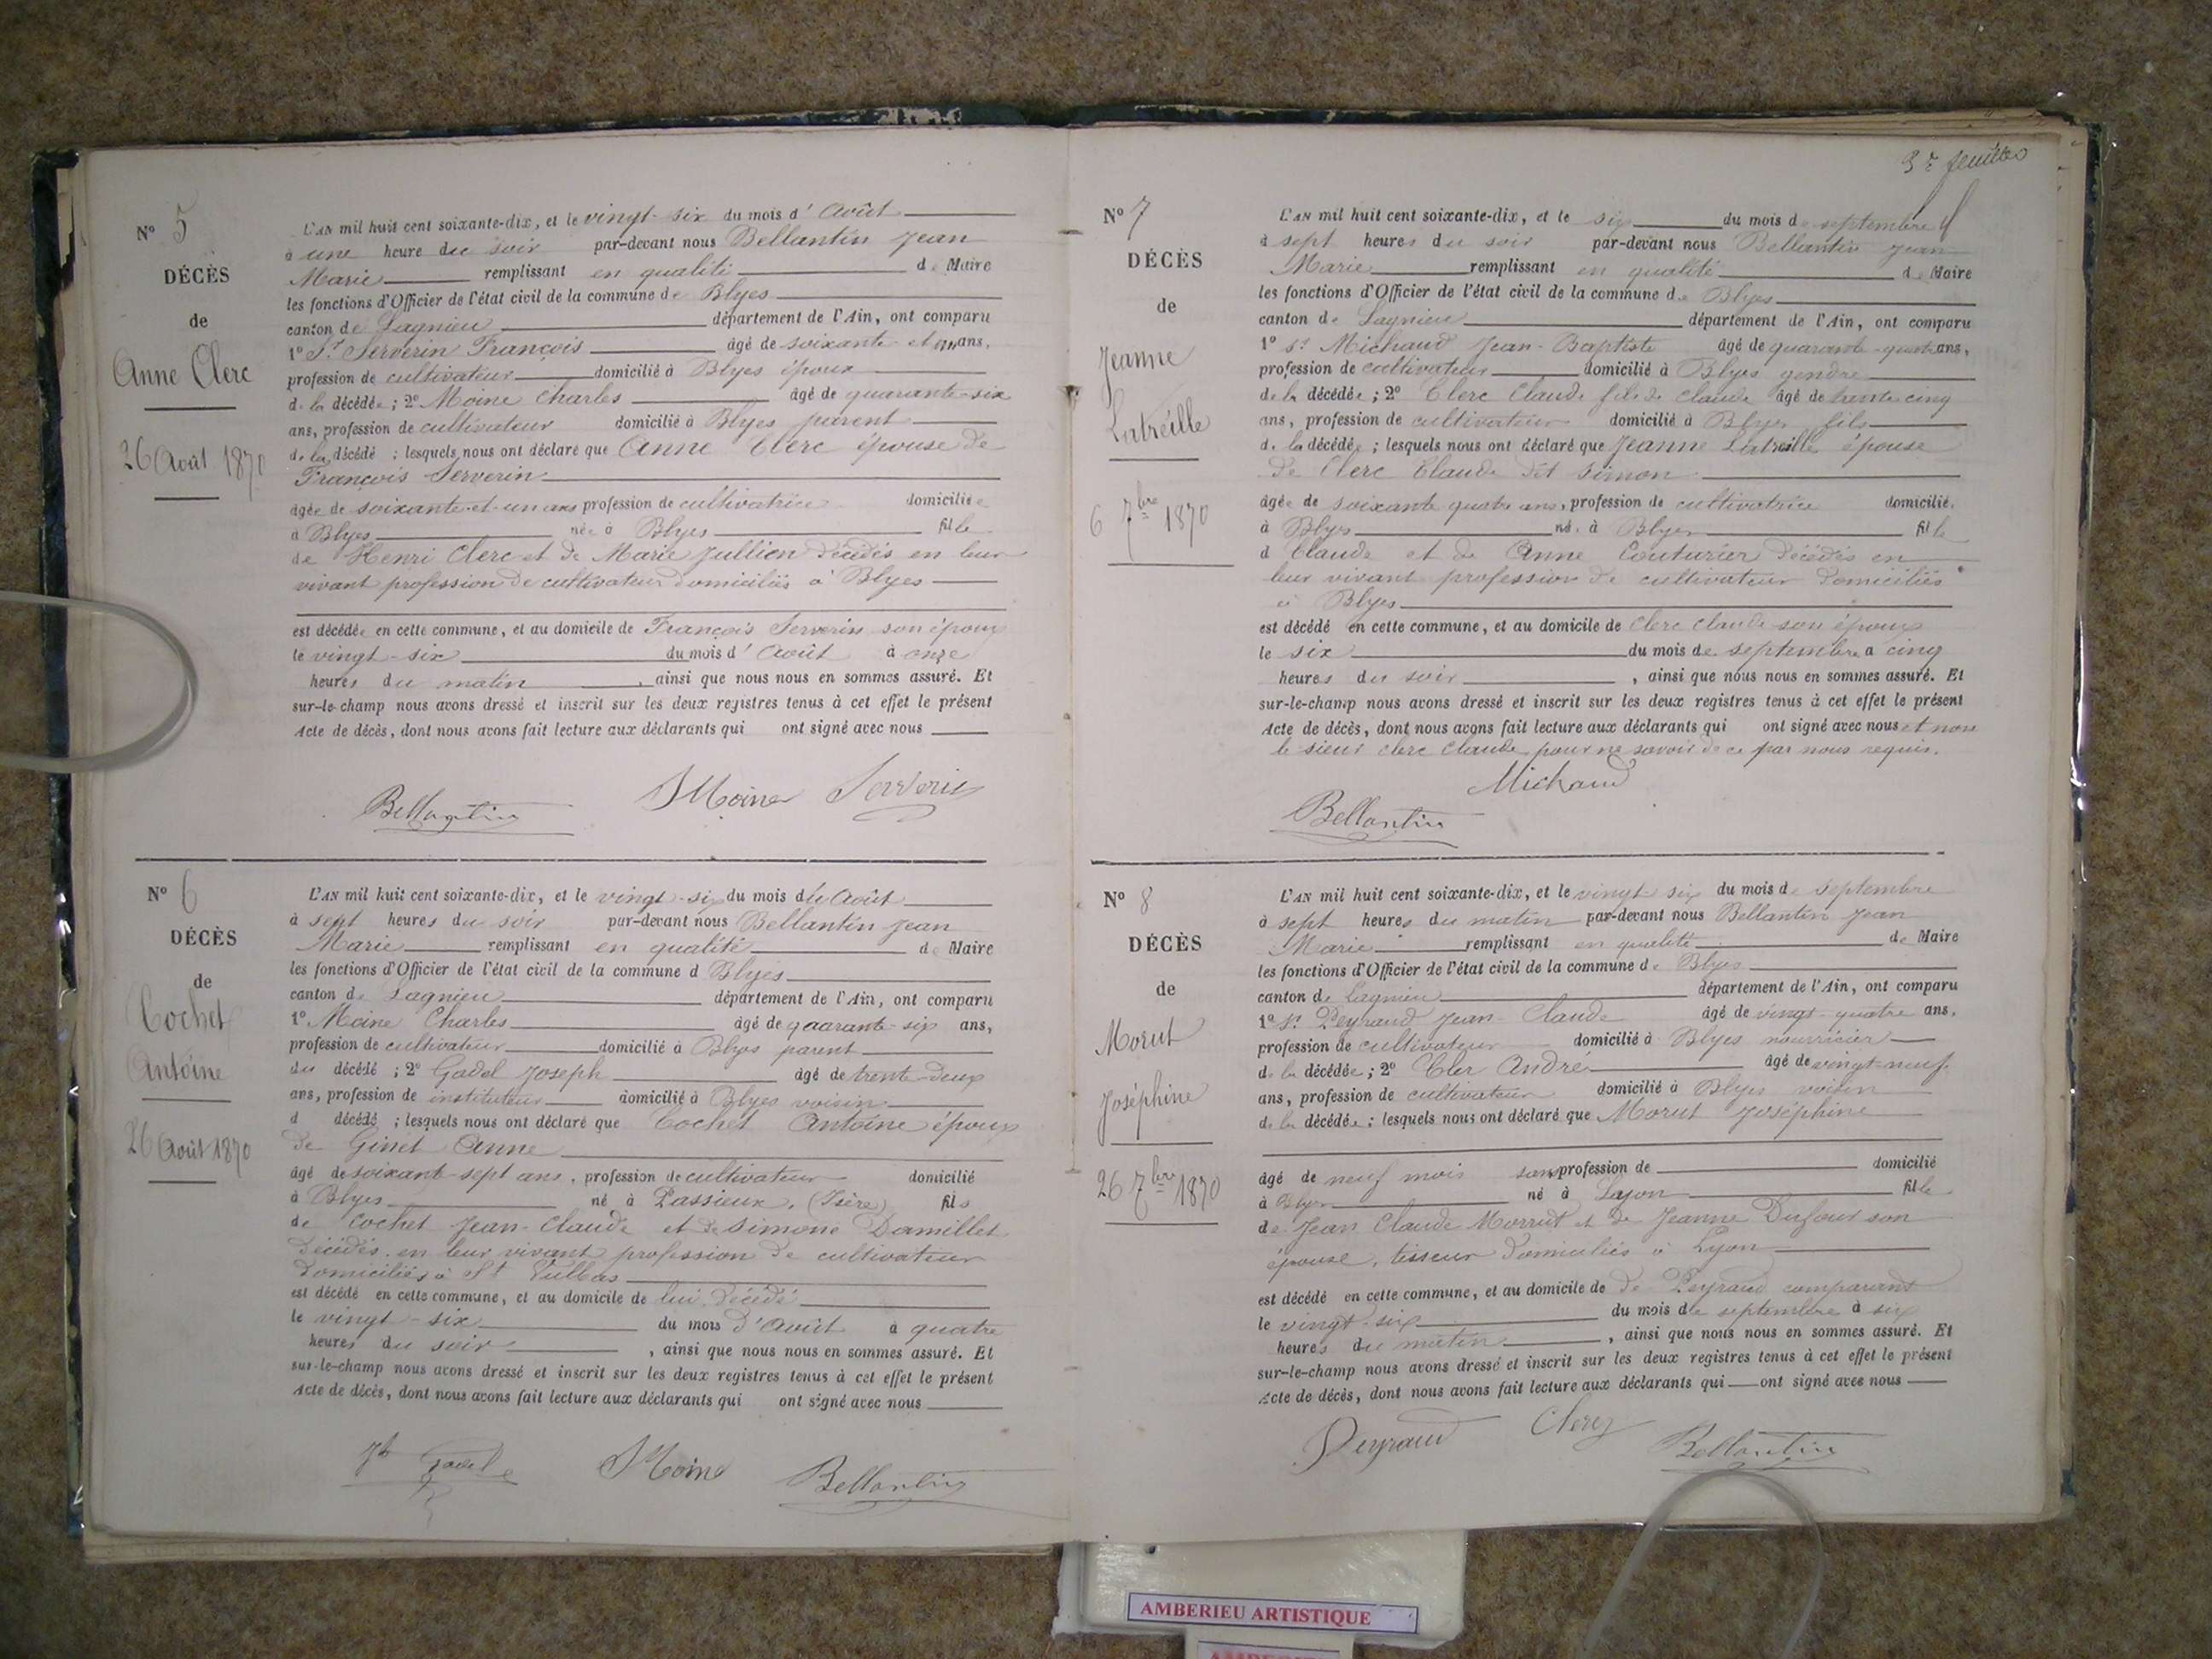 N° 5
DÉCÈS
de
Anne Clerc
26 Août 1870
L'AN mil huit cent soixante-dix, et le vingt-six du mois d'Août
à une heure du soir par-devant nous Bellantin Jean
Marie remplissant en qualité de Maire
les fonctions d'Officier de l'état civil de la commune de Blyes
canton de Lagnieu département de l'Ain, ont comparu
1° St Serverin François âgé de soixante et un ans,
profession de cultivateur domicilié à Blyes époux
de la décédée ; 2° Moine Charles âgé de quarante-six
ans, profession de cultivateur domicilié à Blyes parent
de la décédé ; lesquels nous ont déclaré que Anne Clerc épouse de
François Serverin
âgée de soixante-et-un ans profession de cultivatrice domiciliée
à Blyes née à Blyes fille
de Henri Clerc et de Marie Jullien décédés en leur
vivant profession de cultivateur domiciliés à Blyes
est décédée en cette commune, et au domicile de François Serverin son époux
le vingt-six du mois d'Août à onze
heures du matin, ainsi que nous nous en sommes assuré. Et
sur-le-champ nous avons dressé et inscrit sur les deux registres tenus à cet effet le présent
Acte de décès, dont nous avons fait lecture aux déclarants qui ont signé avec nous
Bellantin Moine Serverin
N° 6
DÉCÈS
de
Cochet
Antoine
26 Août 1870
L'AN mil huit cent soixante-dix, et le vingt-six du mois du Août
à sept heures du soir par-devant nous Bellantin Jean
Marie remplissant en qualité de Maire
les fonctions d'Officier de l'état civil de la commune d Blyes
canton de Lagnieu département de l'Ain, ont comparu
1° Moine Charles âgé de quarante-six ans,
profession de cultivateur domicilié à Blyes parent
du décédé ; 2° Gadel Joseph âgé de trente-deux
ans, profession de instituteur domicilié à Blyes voisin
d décédé ; lesquels nous ont déclaré que Cochet Antoine époux
de Ginet Anne
âgé de soixant-sept ans, profession de cultivateur domicilié
à Blyes né à Passieux, (Isère) fils
de Cochet Jean-Claude et de Simone Damillet
décédés en leur vivant profession de cultivateur
domiciliés à St Vulbas
est décédé en cette commune, et au domicile de lui décédé
le vingt-six du mois d'Août à quatre
heures du soir, ainsi que nous nous en sommes assuré. Et
sur-le-champ nous avons dressé et inscrit sur les deux registres tenus à cet effet le présent
Acte de décès, dont nous avons fait lecture aux déclarants qui ont signé avec nous
Jh Gadel Moine Bellantin
3e feuille
N° 7
DÉCÈS
de
Jeanne
Latreille
6 7bre 1870
L'AN mil huit cent soixante-dix, et le six du mois de septembre
à sept heures du soir par-devant nous Bellantin Jean
Marie remplissant en qualité de Maire
les fonctions d'Officier de l'état civil de la commune de Blyes
canton de Lagnieu département de l'Ain, ont comparu
1° St Michaud Jean-Baptiste âgé de quarante-quatre ans,
profession de cultivateur domicilié à Blyes gendre
de la décédée ; 2° Clerc Claude fils de Claude âgé de trente cinq
ans, profession de cultivateur domicilié à Blyes fils
de la décédée ; lesquels nous ont déclaré que Jeanne Latreille épouse
de Clerc Claude dit Simon
âgée de soixante quatre ans, profession de cultivatrice domicilié.
à Blyes né à Blyes fille
d Claude et de Anne Couturier décédés en
leur vivant profession de cultivateur domiciliés
à Blyes
est décédé en cette commune, et au domicile de Clerc Claude son époux
le six du mois de septembre à cinq
heures du soir, ainsi que nous nous en sommes assuré. Et
sur-le-champ nous avons dressé et inscrit sur les deux registres tenus à cet effet le présent
Acte de décès, dont nous avons fait lecture aux déclarants qui ont signé avec nous et non
le sieur Clerc Claude pour ne savoir de ce par nous requis.
Michaud
Bellantin
N° 8
DÉCÈS
de
Morut
Joséphine
26 7bre 1870
L'AN mil huit cent soixante-dix, et le vingt six du mois de septembre
à sept heures du matin par-devant nous Bellantin Jean
Marie remplissant en qualité de Maire
les fonctions d'Officier de l'état civil de la commune de Blyes
canton de Lagnieu département de l'Ain, ont comparu
1° St Peyraud Jean-Claude âgé de vingt-quatre ans,
profession de cultivateur domicilié à Blyes nourricier
de la décédée ; 2° Cler André âgé de vingt-neuf
ans, profession de cultivateur domicilié à Blyes voisin
de la décédée ; lesquels nous ont déclaré que Morut Joséphine
âgé de neuf mois sans profession de domicilié
à Blyes né à Lyon fille
de Jean Claude Morrut et de Jeanne Dufour son
épouse, tisseur domiciliés à Lyon
est décédé en cette commune, et au domicile de de Peyraud comparant
le vingt-six du mois de septembre à six
heures du matin, ainsi que nous nous en sommes assuré. Et
sur-le-champ nous avons dressé et inscrit sur les deux registres tenus à cet effet le présent
Acte de décès, dont nous avons fait lecture aux déclarants qui ont signé avec nous
Peyraud Clerc Bellantin
AMBERIEU ARTISTIQUE